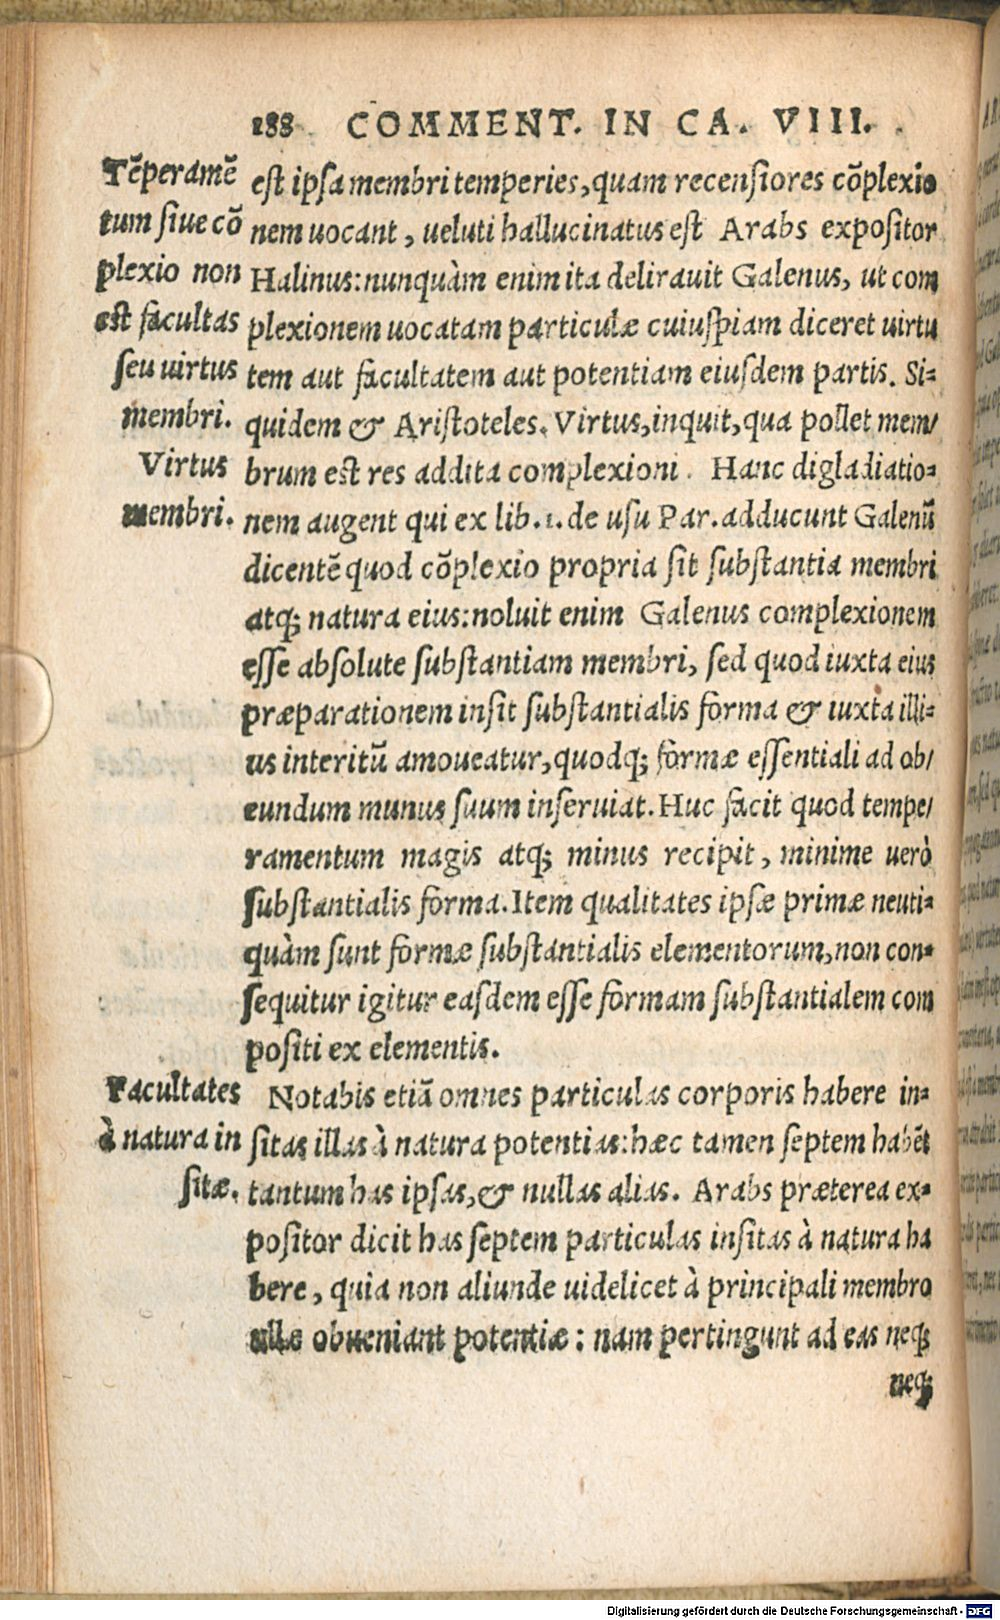 188 COMMENT. IN CA. VIII.
Tẽperamẽ
tum siue cõ
plexio non
est facultas
seu uirtus
membri.
Virtus
membri.
est ipsa membri temperies, quam recensiores cõplexio
nem uocant, ueluti hallucinatus est Arabs expositor
Halinus: nunquàm enim ita delirauit Galenus, ut com
plexionem uocatam particulæ cuiuspiam diceret uirtu
tem aut facultatem aut potentiam eiusdem partis. Si-
quidem & Aristoteles. Virtus, inquit, qua pollet mem/
brum est res addita complexioni. Hanc digladiatio-
nem augent qui ex lib. 1. de usu Par. adducunt Galenũ
dicentẽ quod cõplexio propria sit substantia membri
atq; natura eius: noluit enim Galenus complexionem
esse absolute substantiam membri, sed quod iuxta eius
præparationem insit substantialis forma & iuxta illi-
us interitũ amoueatur, quodq; formæ essentiali ad ob/
eundum munus suum inseruiat. Huc facit quod tempe/
ramentum magis atq; minus recipit, minime uerò
substantialis forma. Item qualitates ipsæ primæ neuti-
quàm sunt formæ substantialis elementorum, non con-
sequitur igitur easdem esse formam substantialem com
positi ex elementis.
Facultates
à natura in
sitæ.
Notabis etiã omnes particulas corporis habere in-
sitas illas à natura potentias: hæc tamen septem habẽt
tantum has ipsas, & nullas alias. Arabs præterea ex-
positor dicit has septem particulas insitas à natura ha
bere, quia non aliunde uidelicet à principali membro
ullæ obueniant potentiæ: nam pertingunt ad eas neq;
neq;
Digitalisierung gefördert durch die Deutsche Forschungsgemeinschaft - DFG